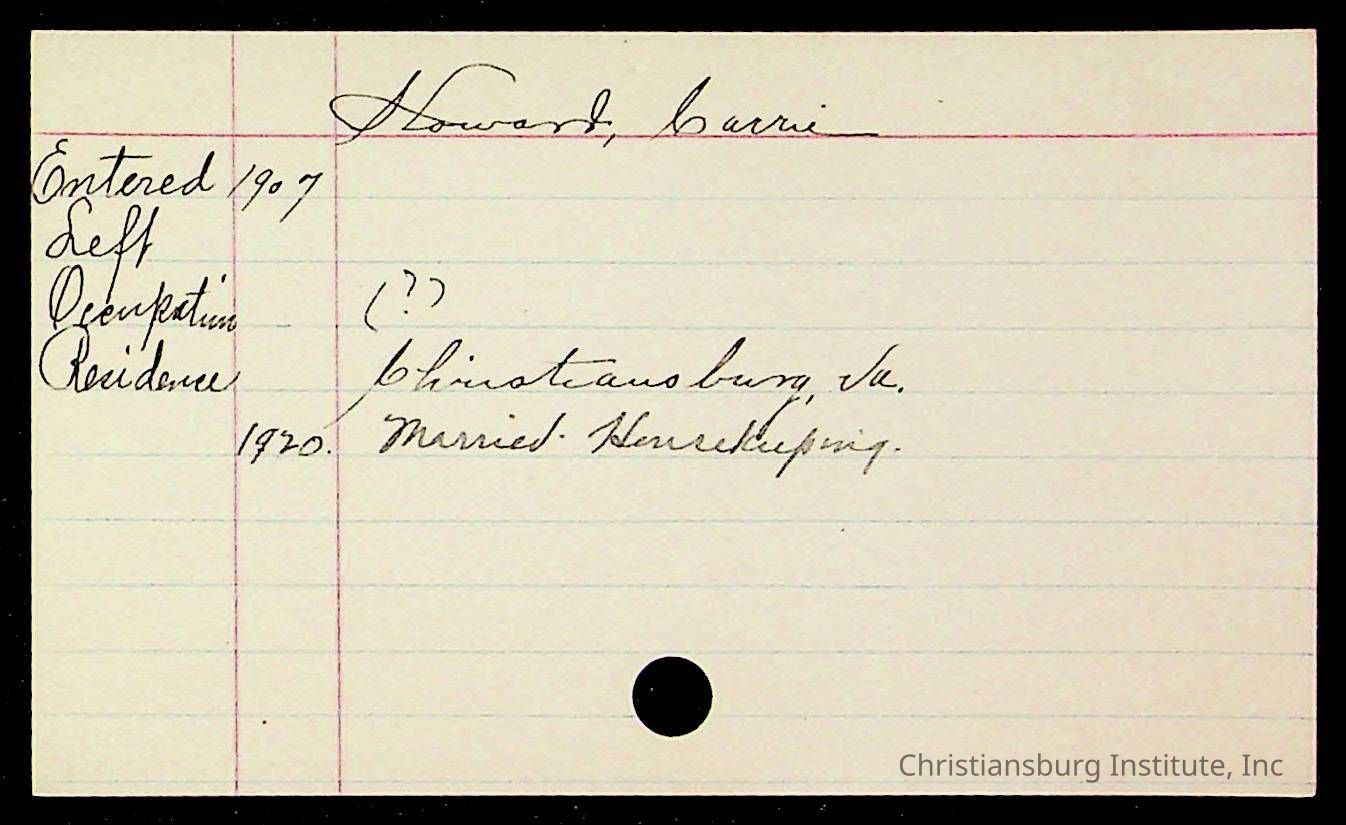 Howard, Carrie
Entered 1907
Left
Occupation (??)
Residence Christiansburg, Va.
1920. Married. Housekeeping.
Christiansburg Institute, Inc